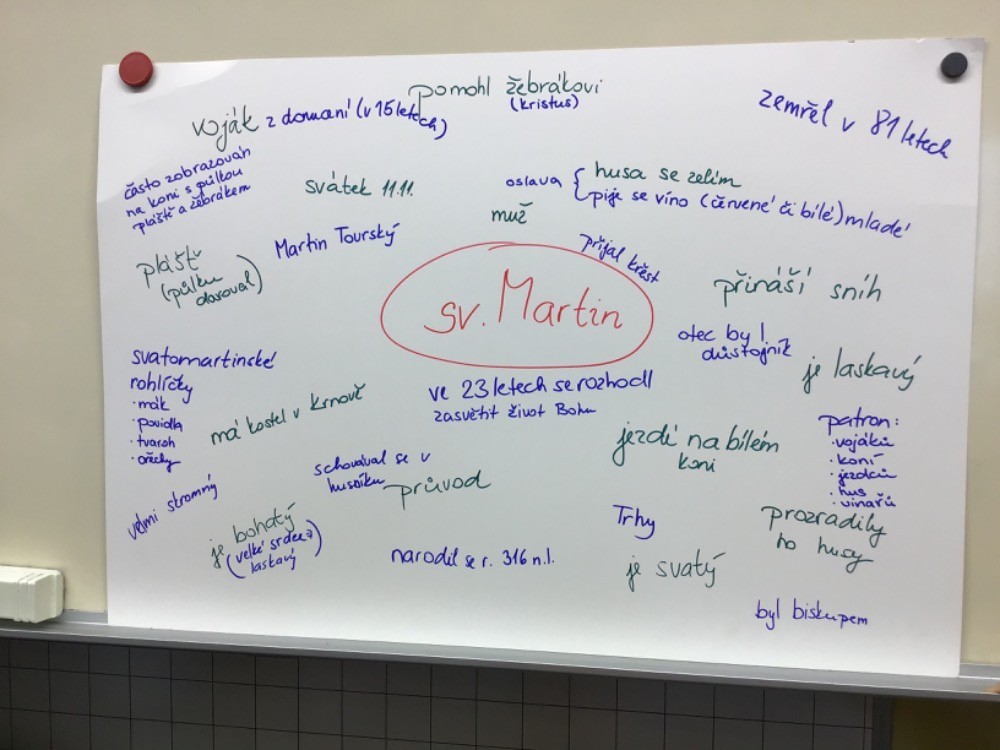 pomohl žebrákovi
(kristus)
voják z donucaní (v 15 letech)
zemřel v 81 letech
často zobrazován
na koni s půlkou
pláště a žebrákem
svátek 11.11.
oslava { husa se zelím
pije se víno (červené či bílé) mladé
muž
Martin Tourský
přijal křest
plášť
(půlku
daroval)
sv. Martin
přináší sníh
otec byl
důstojník
je laskavý
svatomartinské
rohlíčky
· mák
· povidla
· tvaroh
· ořechy
ve 23 letech se rozhodl
zasvětit život Bohu
má kostel v Krnově
patron:
· vojáků
· koní
· jezdců
· hus
· vinařů
jezdí na bílém
koni
schovával se v
husníku
průvod
velmi skromný
je bohatý
(velké srdce
laskavý)
Trhy
prozradily
ho husy
narodil se r. 316 n.l.
je svatý
byl biskupem